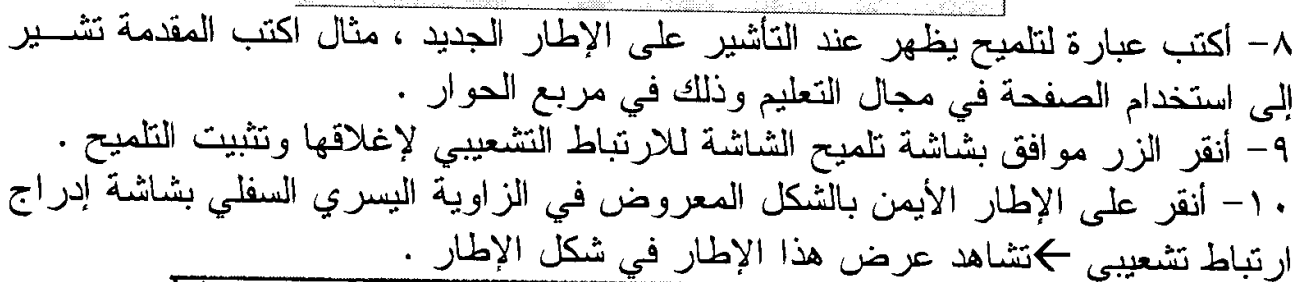 ٨- أكتب عبارة لتلميح يظهر عند التأشير على الإطار الجديد ، مثال اكتب المقدمة تشـــير
إلى استخدام الصفحة في مجال التعليم وذلك في مربع الحوار .
٩- أنقر الزر موافق بشاشة تلميح الشاشة للارتباط التشعيبي لإغلاقها وتثبيت التلميح .
١٠- أنقر على الإطار الأيمن بالشكل المعروض في الزاوية اليسري السفلي بشاشة إدراج
ارتباط تشعيبي ←تشاهد عرض هذا الإطار في شكل الإطار .